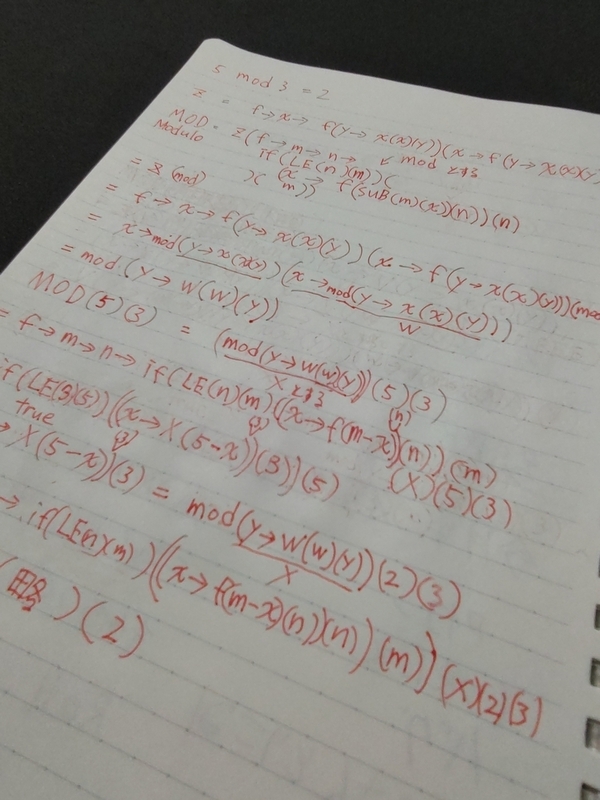 5 mod 3 = 2
Z = f→x→ f(y→ x(x)(y))(x→f(y→x(x)(y)
MOD = Z(f→m→n→ ↙ mod
Modulo if(LE(n)(m))(
)( x→ f(SUB(m)(x))(n))(n)
m))
= Z (mod)
= f→ x→ f(y→ x(x)(y))(x→ f(y→x(x)(y)))(mod
= x→mod(y→x(x)(y))(x→mod(y→ x(x)(y)))
W
= mod (y→ w(w)(y))
MOD(5)(3) = (mod(y→w(w)(y))(5)(3)
X
= f→m→n→ if(LE(n)(m)((x→f(m-x)(n))(m)
(X)(5)(3)
if(LE(3)(5))((x→X(5-x)(3))(5)
true
→ X(5-x))(3) = mod(y→w(w)(y))(2)(3)
X
→ if(LE(n)(m))((x→ f(m-x)(n))(n))(m))(X)(2)(3)
(略)(2)